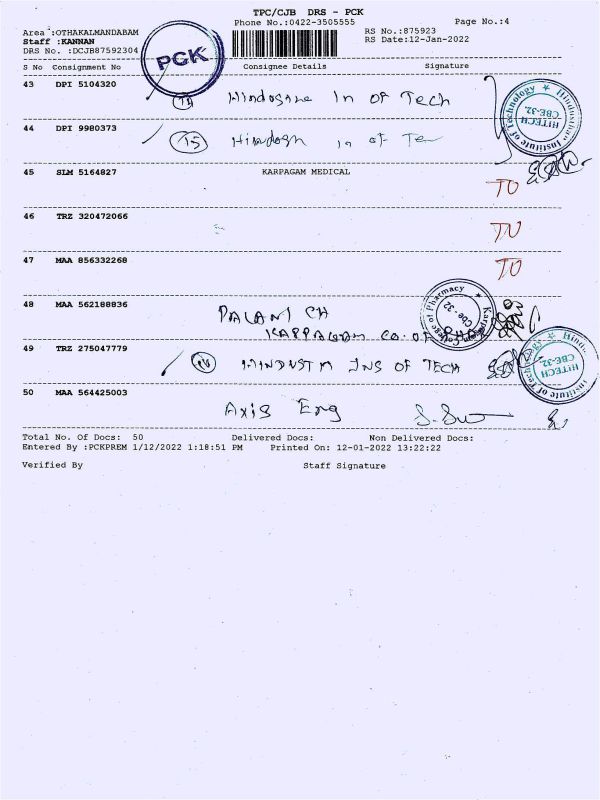 TPC/CJB DRS - PCK
Phone No.:0422-3505555
Page No.:4
Area :OTHAKALMANDABAM
Staff :KANNAN
DRS No. :DCJB87592304
RS No.:875923
RS Date:12-Jan-2022
PCK
S No Consignment No Consignee Details Signature
43 DPI 5104320 14 Hindosthane In OF Tech
Hindusthan Institute of Technology
HITECH
CBE-32.
44 DPI 9980373 15 Hindosthn in of Te
45 SLM 5164827 KARPAGAM MEDICAL TO
46 TRZ 320472066 TO
47 MAA 856332268 TO
48 MAA 562188836 PALANI CH
KARPAGAM CO. OF PHA
Karpagam College of Pharmacy
Cbe - 32
49 TRZ 275047779 16 HINDUSTN INS OF TECH
Hindusthan Institute of Technology
HITECH
CBE-32.
50 MAA 564425003 Axis Eng
Total No. Of Docs: 50 Delivered Docs: Non Delivered Docs:
Entered By :PCKPREM 1/12/2022 1:18:51 PM Printed On: 12-01-2022 13:22:22
Verified By Staff Signature